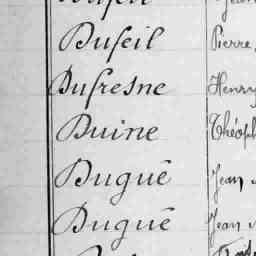 Dufeil Pierre,
Dufresne Henry
Duine Théoph
Dugué Jean
Dugué Jean